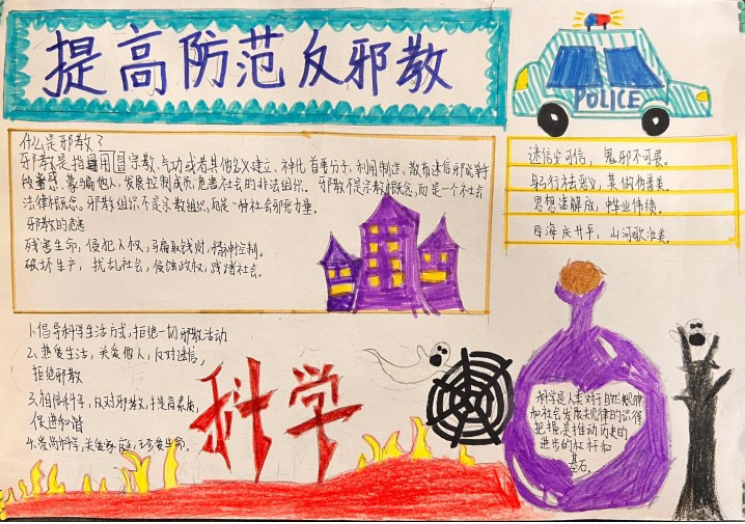 提高防范反邪教
POLICE
什么是邪教？
邪教是指冒用宗教、气功或者其他名义建立、神化首要分子、利用制造、散布迷信邪说等手
蒙骗他人，发展控制成员，危害社会的非法组织。邪教不是宗教概念，而是一个社会
法律概念。邪教组织不是宗教组织，而是一种社会邪恶力量。
邪教的危害
残害生命，侵犯人权，骗取钱财，精神控制。
破坏生产，扰乱社会，侵蚀政权，践踏社会。
迷信安可信，鬼邪不可畏。
躬行祛恶业，莫做伪善美。
思想速解放，中华业伟绩。
四海庆升平，山河歌壮美。
1.倡导科学生活方式，拒绝一切邪教活动
2、热爱生活，关爱他人，反对迷信，
拒绝邪教
3.相信科学，反对邪教，提高素质，
促进和谐
4.崇尚科学，关爱家庭，珍爱生命。
科学
科学是人类对于自然规律
和社会发展规律的认识
把握是推动历史的
进步的杠杆和
基石。